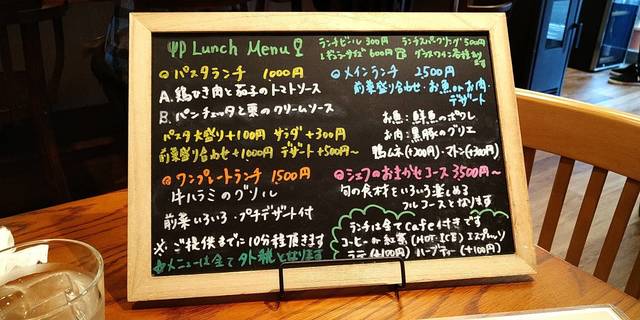 Lunch Menu
ランチビール 300円 ランチスパークリング 500円
レギュラーサイズ 600円 グラスワイン各種あります
◎パスタランチ 1000円
A. 鶏ひき肉と茄子のトマトソース
B. パンチェッタと栗のクリームソース
パスタ大盛り+100円 サラダ+300円
前菜盛り合わせ+1000円 デザート+500円〜
◎ワンプレートランチ 1500円
牛ハラミのグリル
前菜いろいろ・プチデザート付
※ご提供までに10分程頂きます
☆メニューは全て外税となります
◎メインランチ 2500円
前菜盛り合わせ・お魚orお肉・
デザート
お魚：鮮魚のポワレ
お肉：黒豚のグリエ
鴨ムネ(+200円)・マトン(+300円)
◎シェフのおまかせコース 3500円〜
旬の食材をいろいろ楽しめる
フルコースとなります
ランチは全てcafe付きです
コーヒー or 紅茶 (HOT・ICE) エスプレッソ
ラテ (+100円) ハーブティー (+100円)